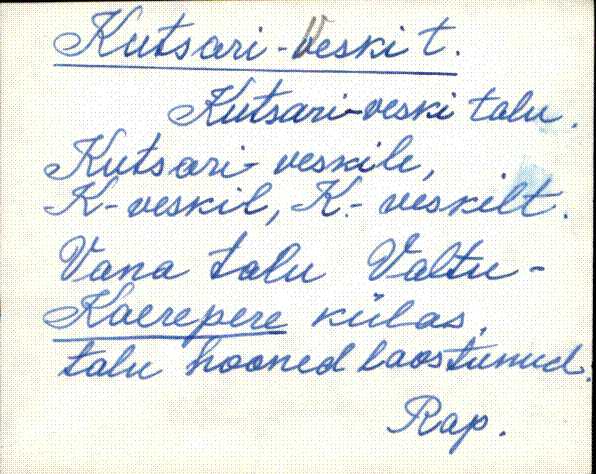 Kutsari-Veski t.
Kutsari-veski talu.
Kutsari-veskile,
K-veskil, K.-veskilt.
Vana talu Valtu-
Kaerepere külas,
talu hooned laostunud.
Rap.